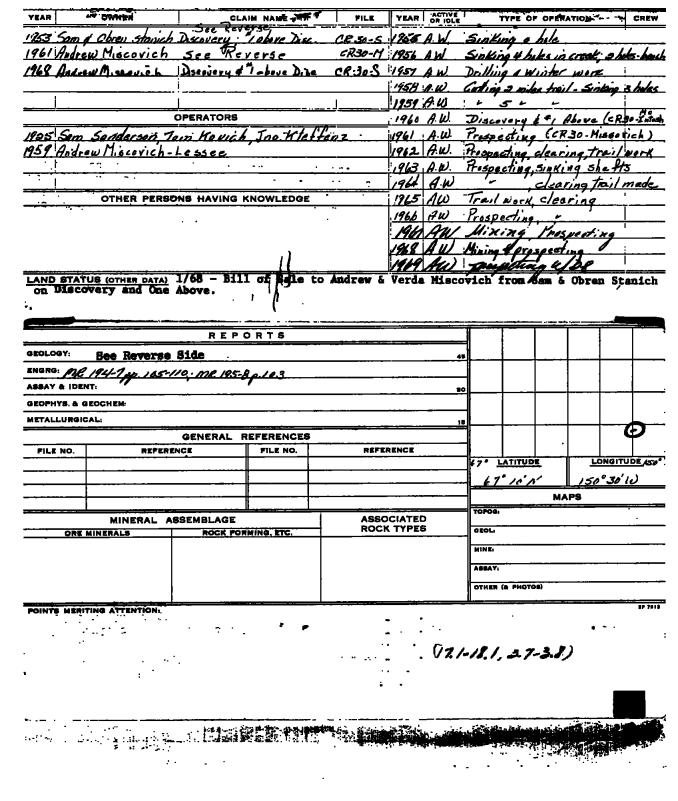 YEAR OWNER CLAIM NAME FILE YEAR ACTIVE OR IDLE TYPE OF OPERATION CREW
See Reverse
1953 Sam & Obren Stanich Discovery 1 above Disc CR30-S A.W. Sinking a hole
1961 Andrew Miscovich See Reverse CR30-M 1956 AW Sinking 4 holes in creek, 2 holes-bench
1968 Andrew Miscovich Discovery & #1 above Disc CR-30-S 1957 AW Drilling & Winter work
1958 A.W. Cutting 2 miles trail - Sinking 3 holes
1959 A.W. " 5 " "
OPERATORS
1960 A.W. Discovery & #1 Above (CR30-
1925 Sam Sanderson, Tom Kovich, Jno. 1961 A.W. Prospecting (CR30-Miscovich)
1959 Andrew Miscovich-Lessee 1962 A.W. Prospecting, clearing, trail work
1963 A.W. Prospecting, sinking shafts
1964 A.W " , clearing trail made
OTHER PERSONS HAVING KNOWLEDGE
1965 AW Trail work, clearing
1966 AW Prospecting, "
1967 AW Mining, Prospecting
1968 AW Mining & prospecting
1969 AW
LAND STATUS (OTHER DATA) 1/68 - Bill of Sale to Andrew & Verda Miscovich from Sam & Obren Stanich
on Discovery and One Above.
REPORTS
GEOLOGY: See Reverse Side 45
ENGRG: MR 194-7 pp. 105-110; MR 195-8 p. 103
ASSAY & IDENT: 30
GEOPHYS. & GEOCHEM:
METALLURGICAL: 15
GENERAL REFERENCES
FILE NO. REFERENCE FILE NO. REFERENCE
67° LATITUDE LONGITUDE 150°
67° 10' N 150° 30' W
MAPS
MINERAL ASSEMBLAGE ASSOCIATED ROCK TYPES
ORE MINERALS ROCK FORMING, ETC.
TOPOG:
GEOL:
MINE:
ASSAY:
OTHER (& PHOTOS)
POINTS MERITING ATTENTION:
(17.1-18.1, 2.7-3.8)